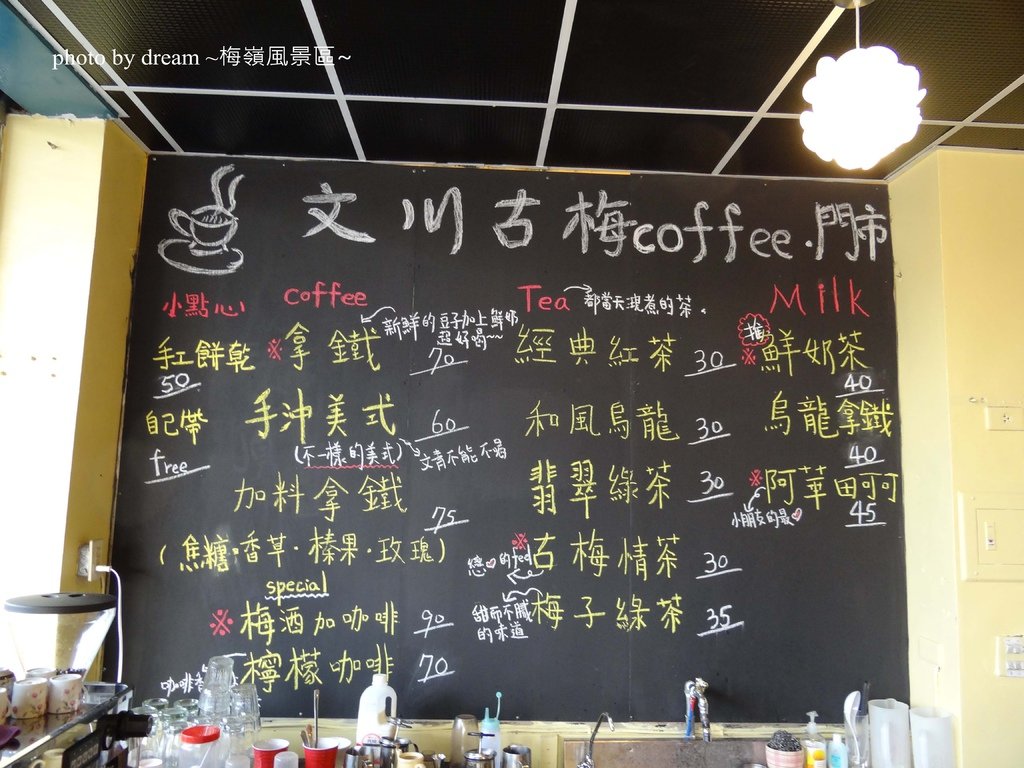 photo by dream ~梅嶺風景區~
文川古梅coffee.門市
小點心
手工餅乾
50
自己帶
free
coffee
新鮮的豆子加上鮮奶
超好喝~~
※拿鐵 70
手沖美式 60
(不一樣的美式)
文青不能不喝
加料拿鐵 75
(焦糖.香草.榛果.玫瑰)
special
※梅酒加咖啡 90
檸檬咖啡 70
Tea
都當天現煮的茶。
經典紅茶 30
和風烏龍 30
翡翠綠茶 30
戀♡的feel
※古梅情茶 30
甜而不膩
的味道
梅子綠茶 35
Milk
推
※鮮奶茶
40
烏龍拿鐵
40
※阿華田可可
小朋友的最♡
45